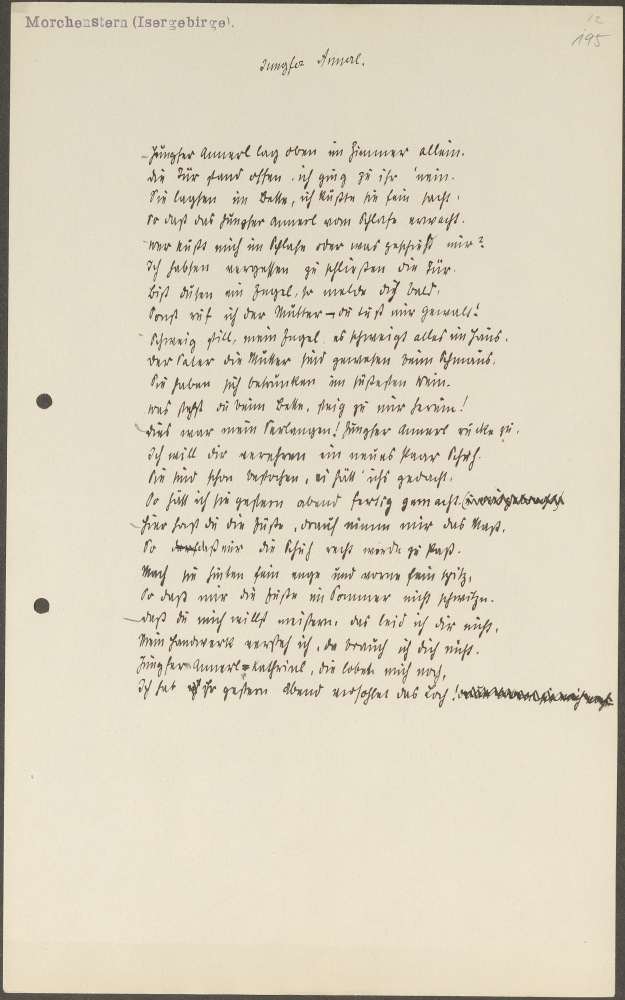 Morchenstern (Isergebirge).
12
195
Jungfer Annerl.
Jungfer Annerl lag oben im Zimmer allein.
die Tür stand offen, ich ging zu ihr 'nein.
Sie lagten im Bette, ich küßte sie fein sacht,
so daß das Jungfer Annerl vom Schlafe erwacht.
wer küßt mich im Schlafe oder was geschieht mir?
Ich habten vergessen zu schließen die Tür.
Bist duten ein Engel, so melde dich bald,
Sonst ruf ich der Mutter – du tust mir Gewalt!
Schweig still, mein Engel, es schweigt alles im Haus.
der Vater die Mutter sind gewesen beim Schmaus.
Sie haben sich betrunken im süßesten Wein.
was stehst du beim Bette, steig zu mir herein!
dies war mein Verlangen! Jungfer Annerl rücke zu.
Ich will dir verehren ein neues Paar Schuh.
Sie sind schon bestochen, es hätt' ichs gedacht,
So hätt ich sie gestern abend fertig gemacht.
Hier hast du die Füße, drauf nimm mir das Maß,
So daß mir die Schuh recht werde zu Paß.
Mach sie hinten fein enge und vorne fein spitz,
So daß mir die Füße im Sommer nicht schwitzn.
daß du mich willst meistern, das leid ich dir nicht,
Mein Handwerk versteh ich, da brauch ich dich nicht.
Jungfer Annerl=Kathrinal, die lobet mich noch,
Ich hat ihr gestern Abend versohlet das Loch!